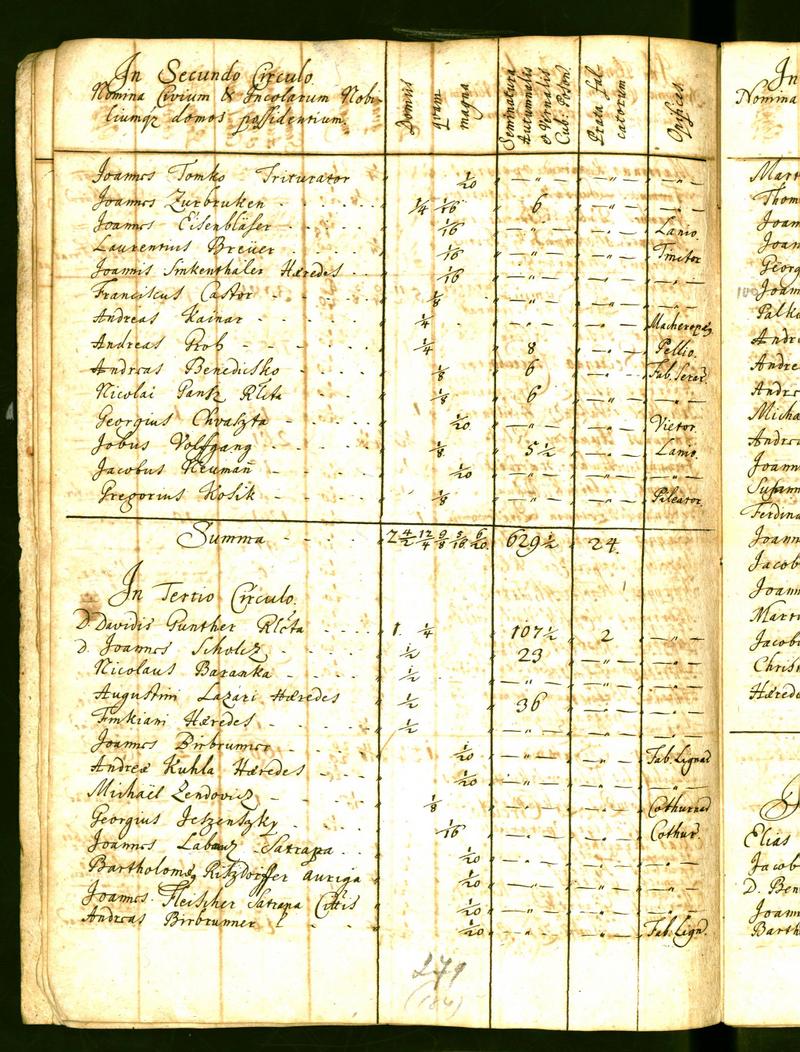 In Secundo Circulo
Nomina Civium & Incolarum Nobi-
liumqz domos possidentium.
Domus quam magna
Seminatura Autumnalis & Vernalis Cub: Poson:
Prata falcatorum
Opifices
Joannes Tomko Triturator " 1/20 " — " — — " — — " —
Joannes Zurbruken 1/4 1/16 6 — " — — " —
Joannes Eisenbläser 1/16 — " — — " — Lanio.
Laurentius Breüer 1/16 — " — — " — Tinctor
Joannis Sinkenthaler Hæredes 1/16 — " — — " — — " —
Franciscus Castor 1/8 — " — — " — — " —
Andreas Kainar 1/4 — " — — " —
Andreas Rob 1/4 8 — " — Pellio.
Andreas Benedicsko 1/8 6 — " — Fab. Serar.
Nicolai Pantz Rlcta 1/8 6 — " — — " —
Georgius Chvaszta 1/20 — " — — " — Vietor.
Jobus Volffgang 1/8 5 1/2 — " — Lanio.
Jacobus Neumañ 1/20 — " — — " — — " —
Gregorius Kosik 1/8 — " — — " — Pileator.
Summa 7 4/2 12/4 9/8 5/16 6/20 629 1/2 24.
In Tertio Circulo.
D. Davidis Gunther Rlcta 1. 1/4 107 1/2 2 — " —
D. Joannes Scholcz 1/2 23 — " — — " —
Nicolaus Baranka 1/2 — " — — " — — " —
Augustini Lazari Hæredes 1/2 36 — " — — " —
Finkiani Hæredes 1/2 — " — — " — — " —
Joannes Birbrunner 1/20 — " — — " — Fab. Lignar
Andreæ Kuhla Hæredes 1/20 — " — — " — — " —
Michaël Zendovicz 1/8 — " — — " — Cothurnar
Georgius Jeszenszky 1/16 — " — — " — Cothur.
Joannes Labancz Satrapa 1/20 — " — — " — — " —
Bartholomæ Ritzdorffer auriga 1/20 — " — — " — — " —
Joannes Fleischer Satrapa Cittis 1/20 — " — — " — — " —
Andreas Birbrunner 1/20 — " — — " — Fab. Lign.
279
(184)
In
Nomina
Mart
Thom
Joan
Joan
Georg
Joan
Palk
Andr
Andre
Andr
Micha
Andre
Joann
Susann
Ferdina
Joann
Jacob
Joann
Mart
Jacob
Christ
Hærede
Elias
Jacob
D. Ben
Joann
Barth